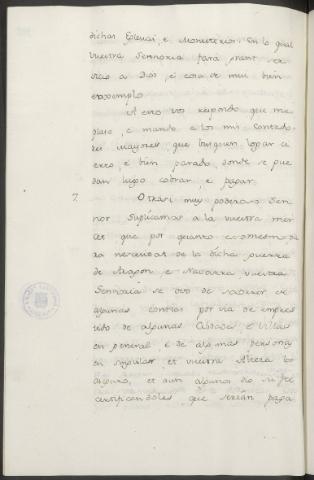 dichas Eglesias, e Monesterios. En lo qual
vuestra Sennoria fara grant ser
vicio a Dios, e cosa de mui buen
exxemplo
A esto vos respondo que me
plase, e mando a los mis Contado
res mayores que busquen logar ci
erto, e bien parado, donde se pue
dan luego cobrar, e pagar.
7. Otrasi muy poderoso Sen
nor suplicamos a la vuestra mer
cet que por quanto
ra necesidat de la dicha guerra
de Aragon, e Navarra vuestra
Sennoria se ovo de socorrer de
algunas contias por via de empres
tido de algunas Cibdades, e Villas
en general e de algunas personas
en singular, et vuestra Alteza los
seguro, et aun algunos dio su fe
certificandoles que serian paga